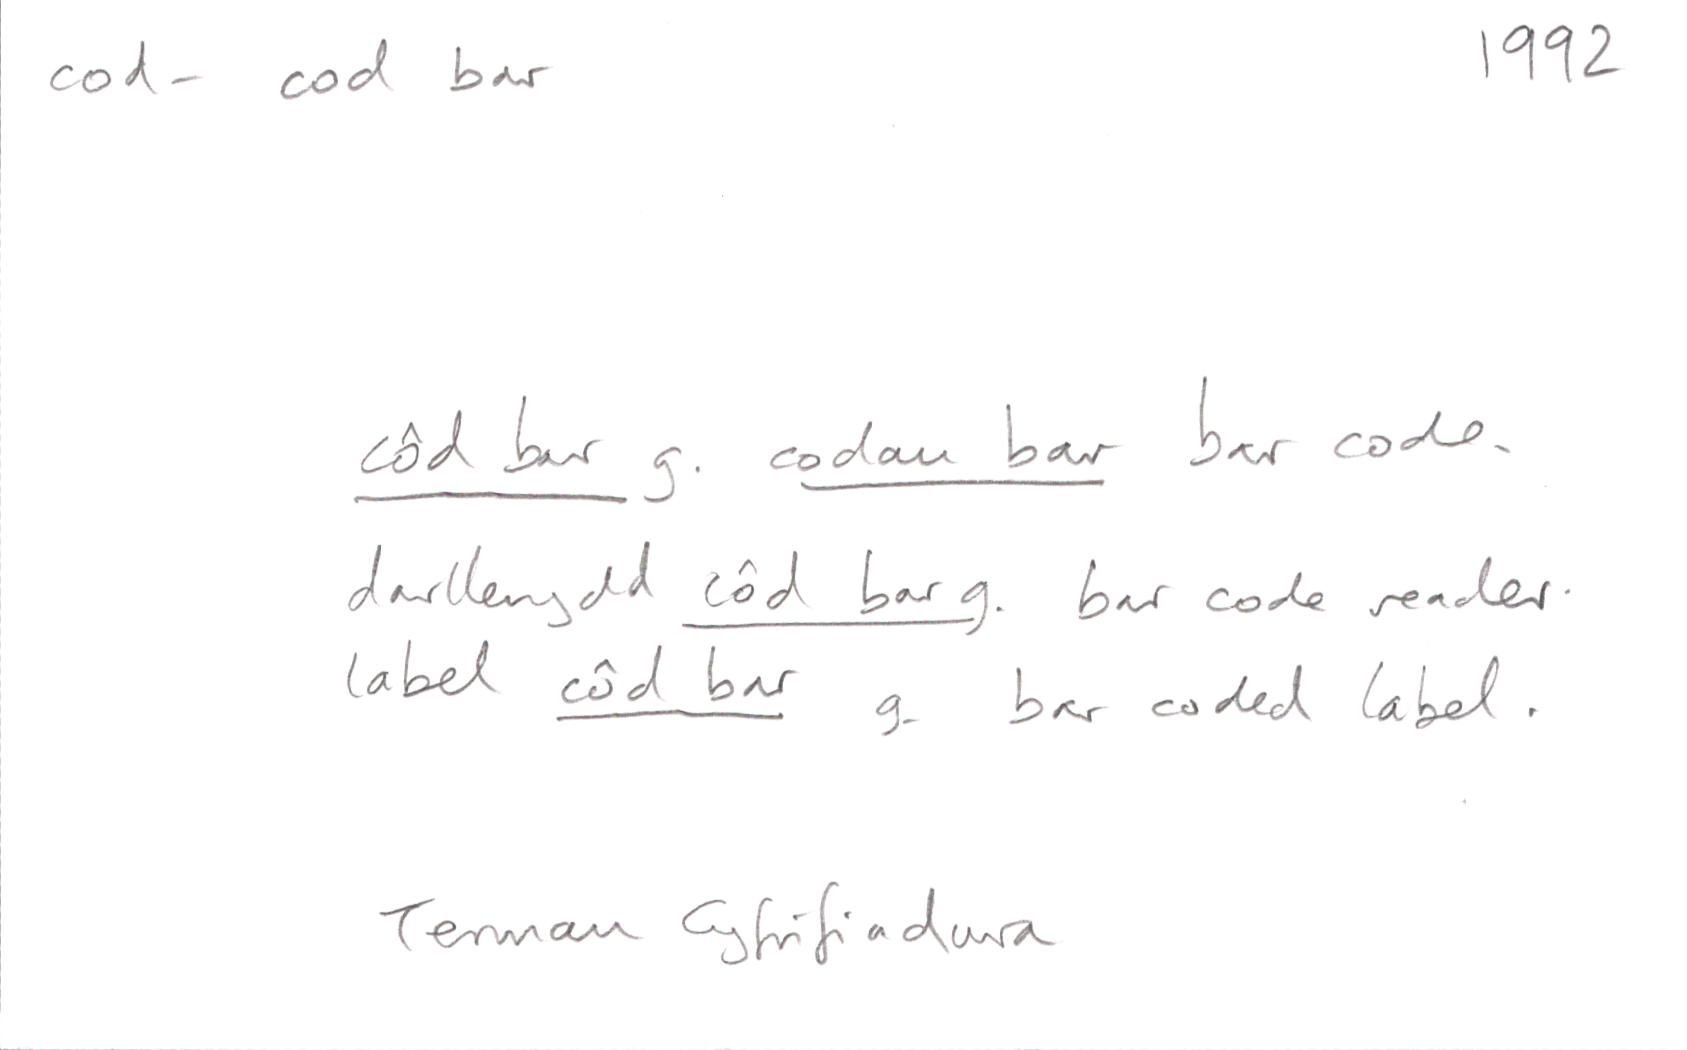 cod- cod bar 1992
côd bar g. codau bar bar code.
darllenydd côd bar g. bar code reader.
label côd bar g. bar coded label.
Termau Cyfrifiadura